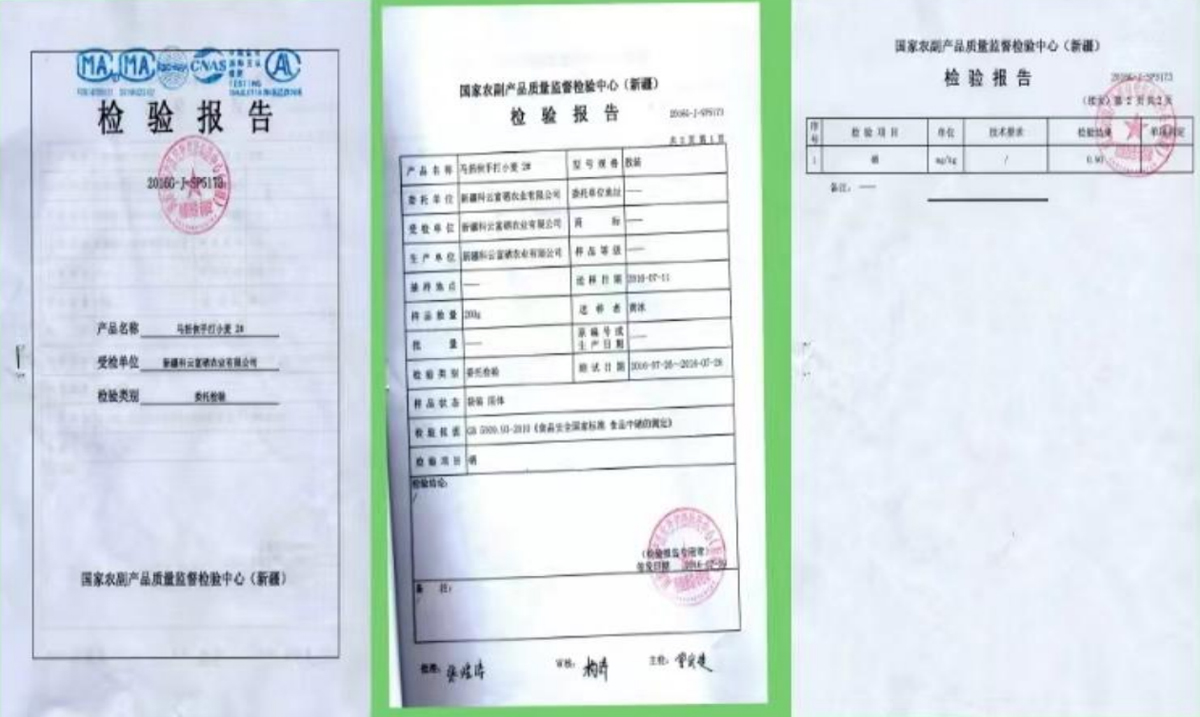 MA MA CNAS AL
TESTING
检验报告
2016G-J-SP5173
产品名称 马扬秋手打小麦 2#
受检单位 新疆科云富硒农业有限公司
检验类别 委托检验
国家农副产品质量监督检验中心（新疆）
国家农副产品质量监督检验中心（新疆）
检验报告
2016G-J-SP5173
共 2 页 第 1 页
产品名称 手打小麦 2# 型号规格 散装
委托单位 新疆科云富硒农业有限公司 委托单位地址 ——
受检单位 新疆科云富硒农业有限公司 商标 ——
生产单位 新疆科云富硒农业有限公司 样品等级 ——
抽样地点 —— 送样日期 2016-07-11
样品数量 200g 送样者
批量 —— 原编号或生产日期 ——
检验类别 委托检验 测试日期 2016-07-26~2016-07-28
样品状态 袋装 固体
检验依据 GB 5009.93-2010《食品安全国家标准 食品中硒的测定》
检验项目 硒
检验结论：
/
（检验报告专用章）
签发日期
备注：
/
批准： 审核： 主检：
国家农副产品质量监督检验中心（新疆）
检验报告
2016G-J-SP5173
（续页）第 2 页 共 2 页
序号 检验项目 单位 技术要求 检验结果 单项判定
1 硒 mg/kg /
备注： ——